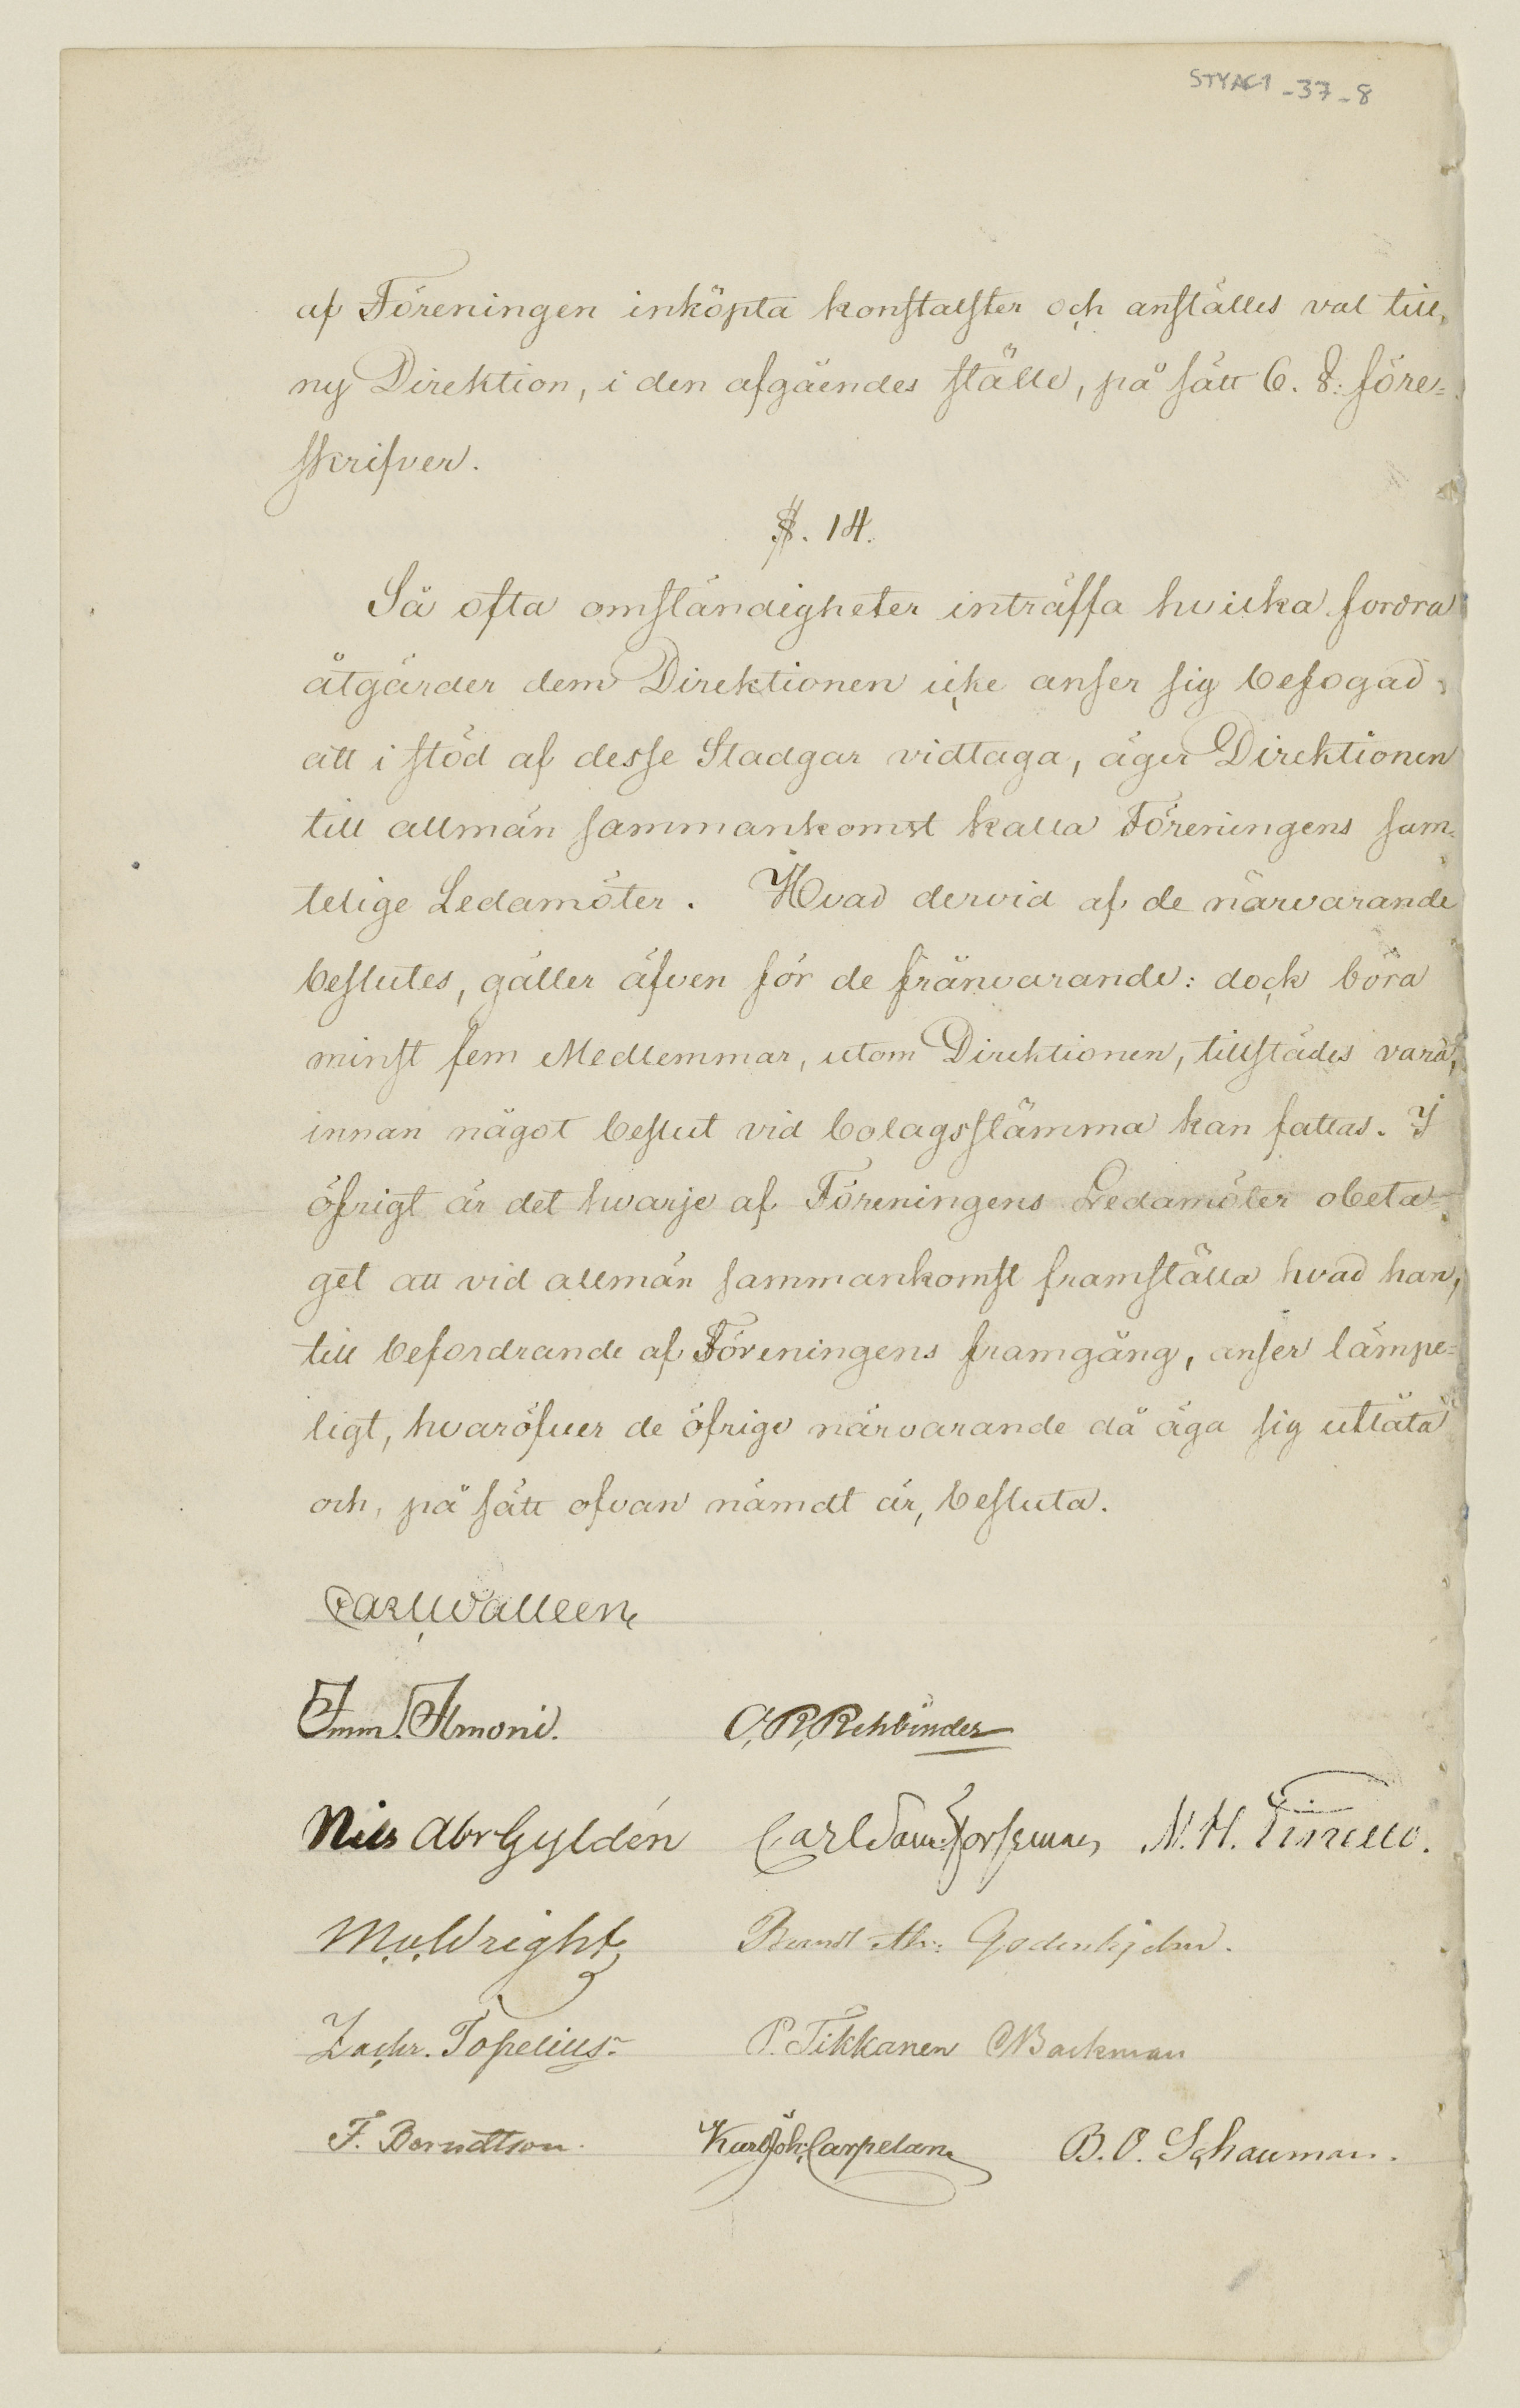 STYAC1-37-8
af Föreningen inköpta konstalster och anställes val till
ny Direktion, i den afgåendes ställe, på sätt 6. §: före-
skrifver.
§. 14.
Så ofta omständigheter inträffa hvilka fordra
åtgärder dem Direktionen icke anser sig befogad
att i stöd af desse Stadgar vidtaga, äger Direktionen
till allmän sammankomst kalla Föreningens sam-
telige Ledamöter. Hvad dervid af de närvarande
beslutes, gäller äfven för de frånvarande: dock böra
minst fem Medlemmar, utom Direktionen, tillstädes vara,
innan något beslut vid bolagsstämma kan fattas. I
öfrigt är det hvarje af Föreningens Ledamöter obeta-
get att vid allmän sammankomst framställa hvad han,
till befordrande af Föreningens framgång, anser lämpe-
ligt, hvaröfver de öfrige närvarande då äga sig utlåta
och, på sätt ofvan nämdt är, besluta.
Carl Walleen
Imm. Ilmoni. C. R. Rehbinder
Nils Abr Gyldén Carl Dan. Forsman N. H. Pinello.
M. v. Wright Berndt Godenhjelm.
Zachr. Topelius. P. Tikkanen Backman
F. Berndtson. Karl Joh. Carpelan B. O. Schauman.